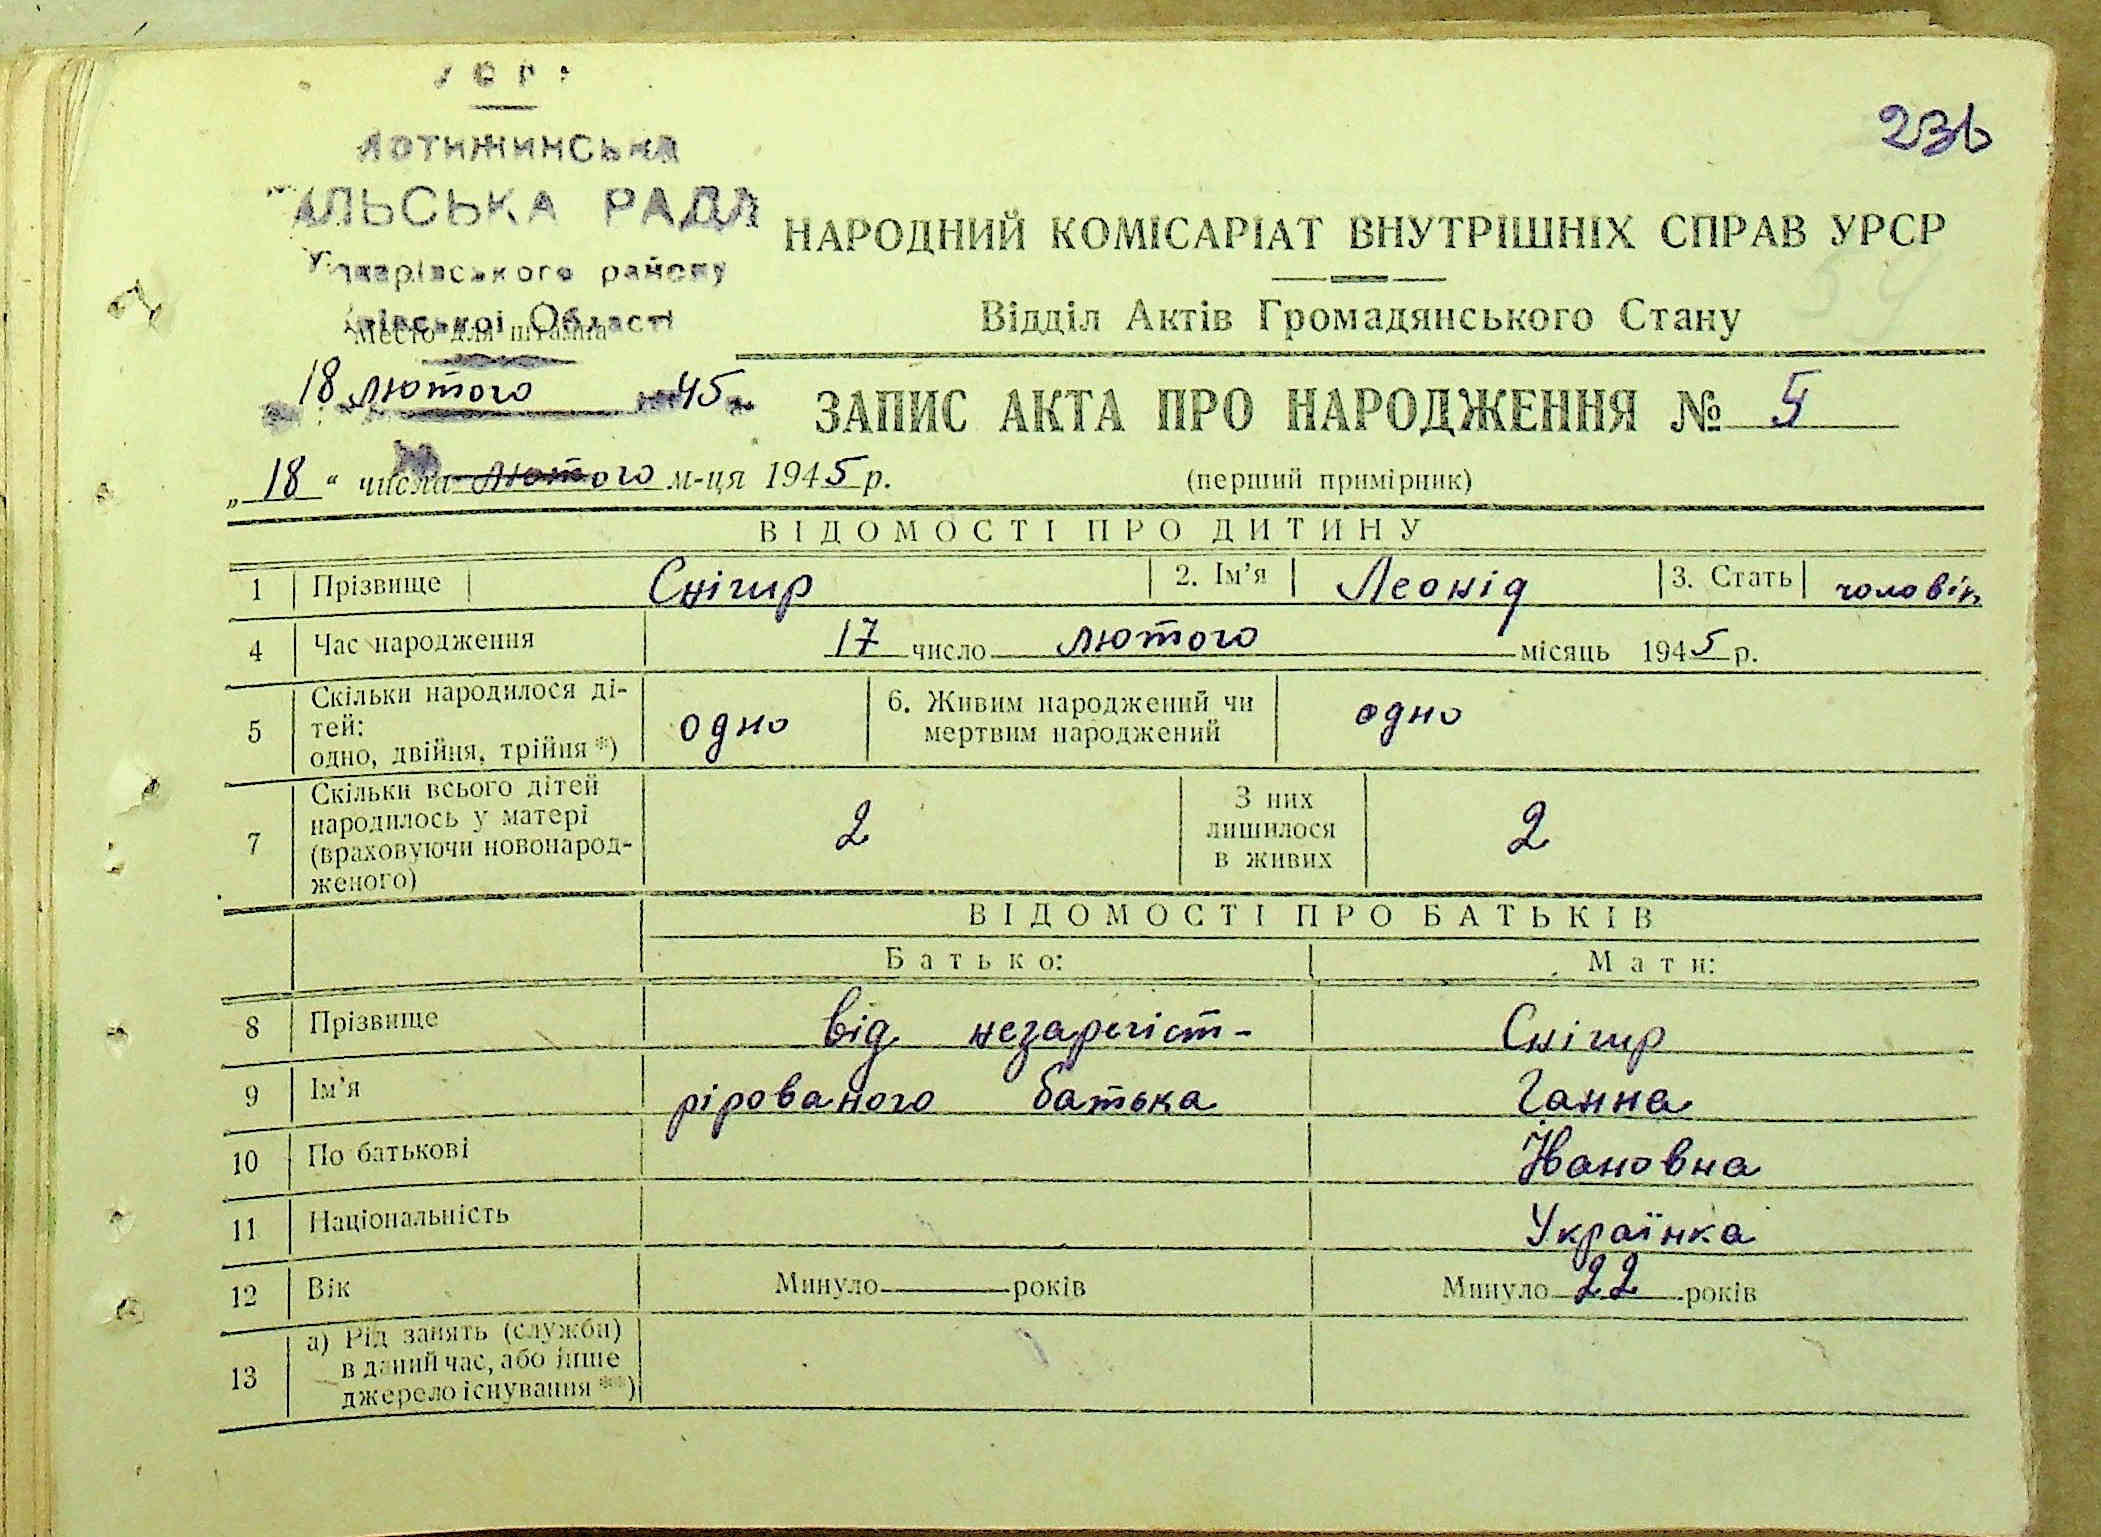 236
НАРОДНИЙ КОМІСАРІАТ ВНУТРІШНІХ СПРАВ УРСР
Відділ Актів Громадянського Стану
РАДА
району
Області
Место для штампа
18 лютого 45
ЗАПИС АКТА ПРО НАРОДЖЕННЯ № 5
„18“ числа лютого м-ця 1945 р.
(перший примірник)
ВІДОМОСТІ ПРО ДИТИНУ
1 Прізвище Снігир 2. Ім’я Леонід 3. Стать чоловіч
4 Час народження 17 число лютого місяць 1945 р.
5 Скільки народилося ді-
тей:
одно, двійня, трійня *) одно
6. Живим народжений чи
мертвим народжений одно
7 Скільки всього дітей
народилось у матері
(враховуючи новонарод-
женого) 2
З них
лишилося
в живих 2
ВІДОМОСТІ ПРО БАТЬКІВ
Батько: Мати:
8 Прізвище від незарегіст- Снігир
9 Ім’я рірованого батька Ганна
10 По батькові Івановна
11 Національність Українка
12 Вік Минуло років Минуло 22 років
13 а) Рід занять (служби)
в даний час, або інше
джерело існування **)